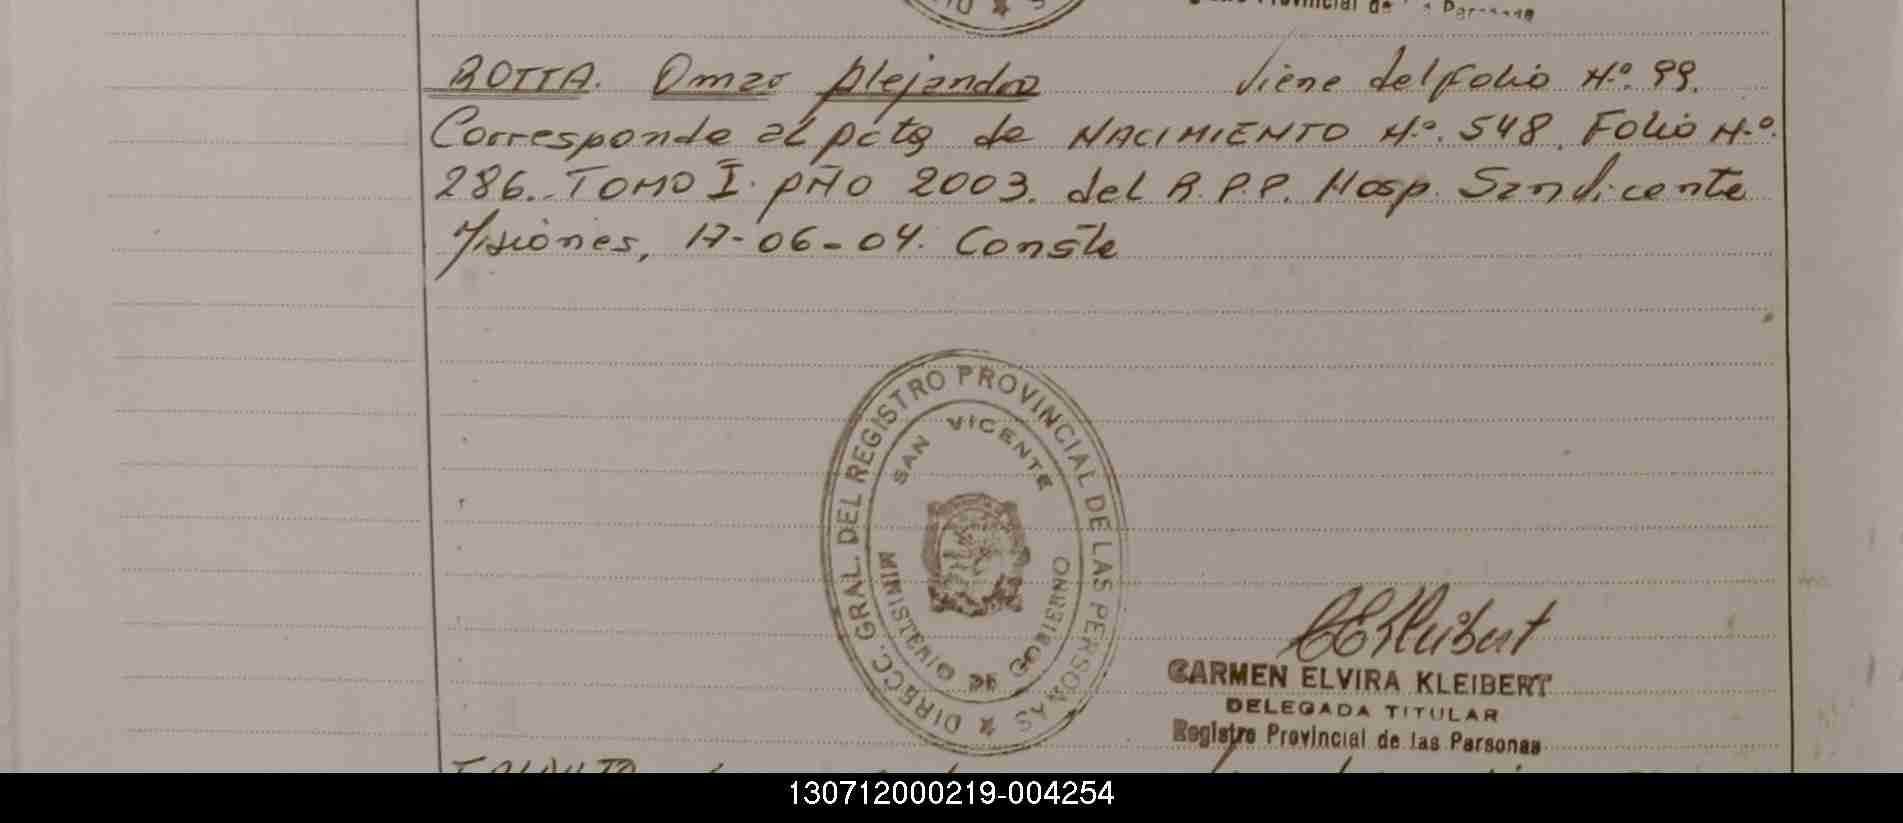 Registro Provincial de las Personas
ROTTA. Omar Alejandro Viene del Folio N.º 99.
Corresponde al Acta de NACIMIENTO N.º 548. Folio N.º
286. TOMO I. AÑO 2003. del R.P.P. Hosp. San Vicente
Misiones, 17-06-04. Conste
DIRECC. GRAL. DEL REGISTRO PROVINCIAL DE LAS PERSONAS
SAN VICENTE
MINISTERIO DE GOBIERNO
CEKleibert
CARMEN ELVIRA KLEIBERT
DELEGADA TITULAR
Registro Provincial de las Personas
130712000219-004254